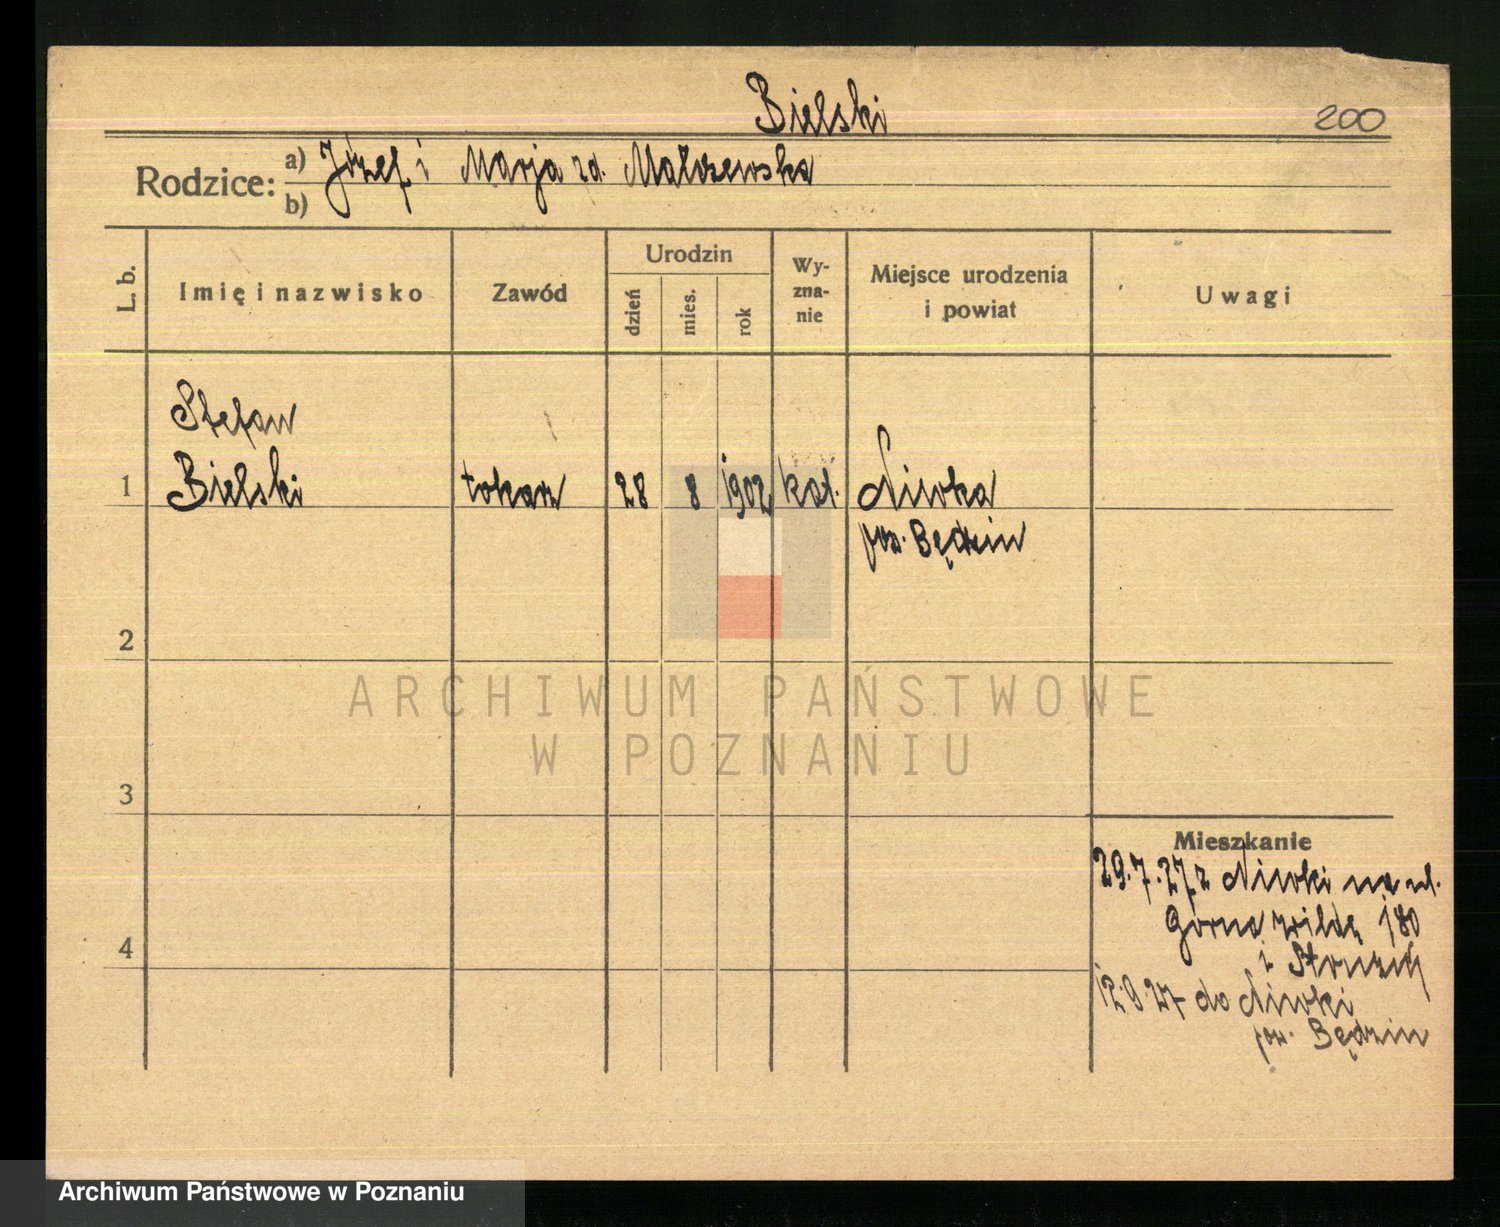 Bielski
200
Rodzice: a) Józef i Marja zd. Małczewska
b)
L. b.
Imię i nazwisko
Zawód
Urodzin
dzień
mies.
rok
Wy-
zna-
nie
Miejsce urodzenia
i powiat
Uwagi
Stefan
1 Bielski tokarz 28 8 1902 kat. Niwka
pow. Będzin
2
ARCHIWUM PAŃSTWOWE
W POZNANIU
3
Mieszkanie
29.7.27 z Niwki na ul.
Górna Wilda 180
4
12.9.27 do Niwki
pow. Będzin
Archiwum Państwowe w Poznaniu